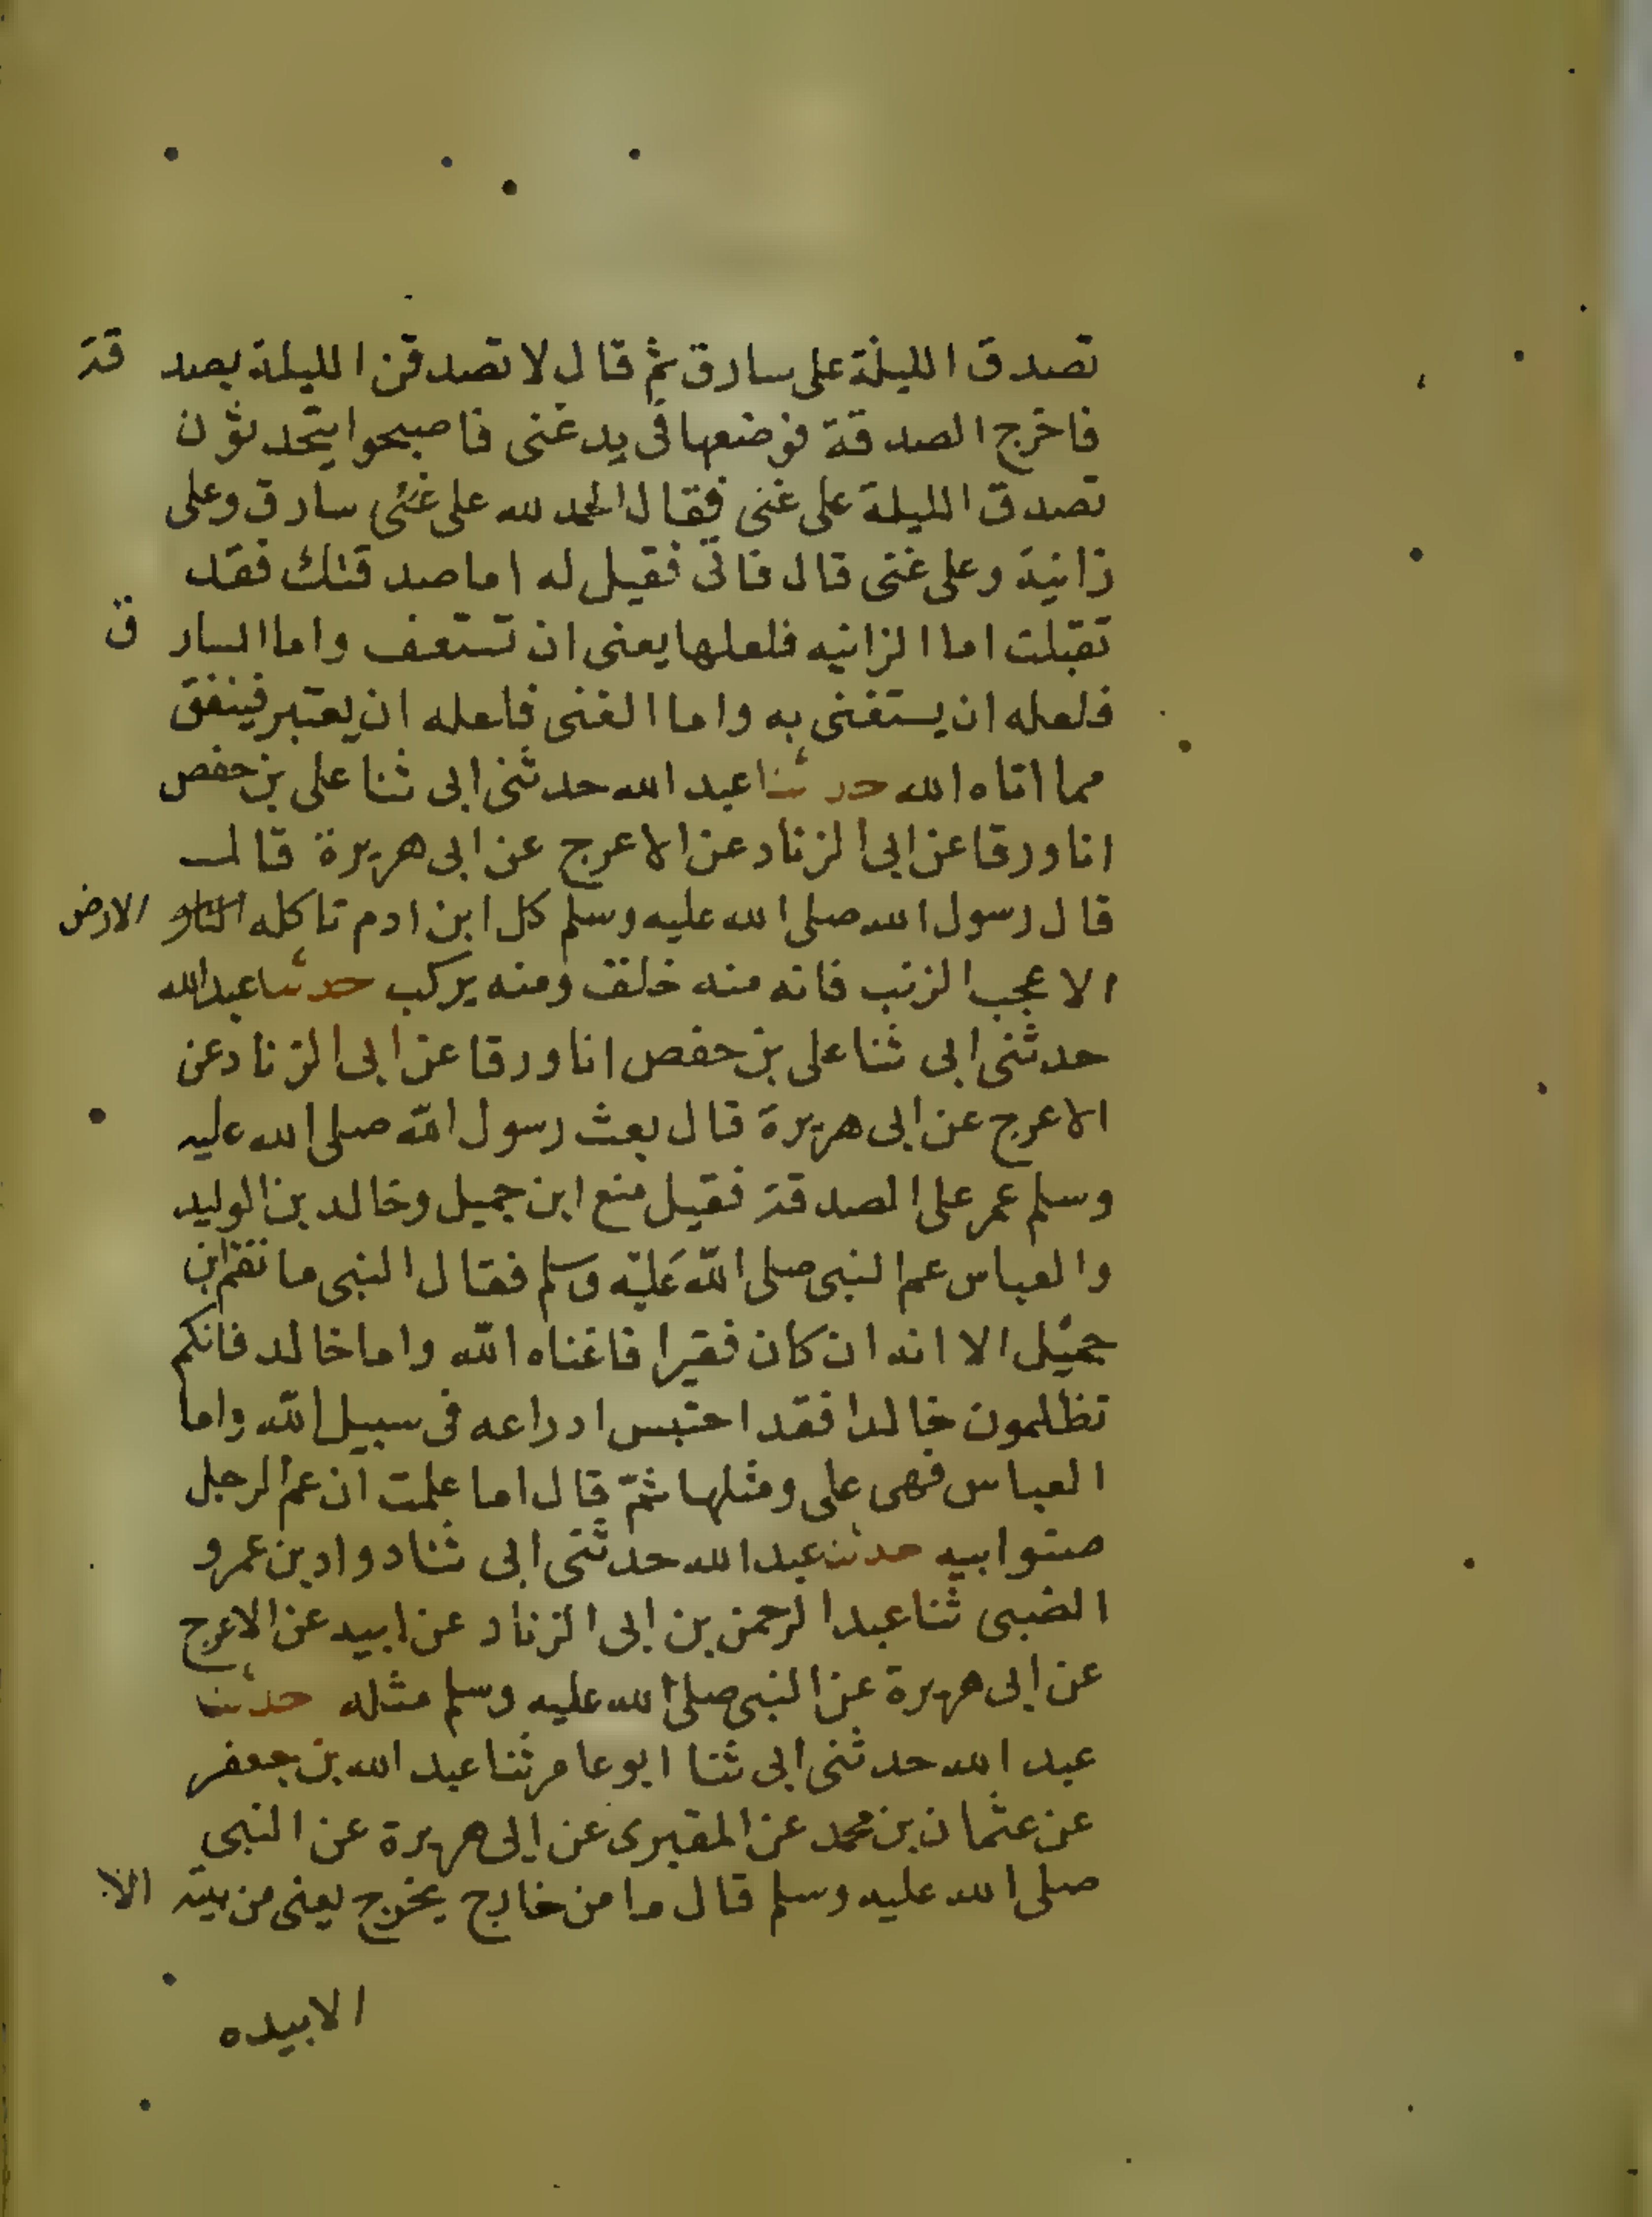 تصدق الليلة على سارق ثم قال لا تصدقن الليلة بصد قة
فاخرج الصدقة فوضعها فى يد غنى فاصبحوا يتحدثون
تصدق الليلة على غنى فقال الحمد لله على غنى سارق وعلى
زانية وعلى غنى قال فاتى فقيل له اما صدقتك فقد
تقبلت اما الزانيه فلعلها يعنى ان تستعف واما السار ق
فلعله ان يستغنى به واما الغنى فلعله ان يعتبر فينفق
مما اتاه الله حدثنا عبد الله حدثنى ابى ثنا على بن حفص
انا ورقا عن ابى الزناد عن الاعرج عن ابى هريرة قال
قال رسول الله صلى الله عليه وسلم كل ابن ادم تاكله الارض
الا عجب الزنب فانه منه خلق ومنه يركب حدثنا عبد الله
حدثنى ابى ثنا على بن حفص انا ورقا عن ابى الزناد عن
الاعرج عن ابى هريرة قال بعث رسول الله صلى الله عليه
وسلم عمر على الصدقة فقيل منع ابن جميل وخالد بن الوليد
والعباس عم النبى صلى الله عليه وسلم فقال النبى ما نقم ابن
جميل الا انه ان كان فقيرا فاغناه الله واما خالد فانكم
تظلمون خالدا فقد احتبس ادراعه فى سبيل الله واما
العباس فهى على ومثلها ثم قال اما علمت ان عم الرجل
صنو ابيه حدثنا عبد الله حدثنى ابى ثنا دواد بن عمرو
الضبى ثنا عبد الرحمن بن ابى الزناد عن ابيه عن الاعرج
عن ابى هريرة عن النبى صلى الله عليه وسلم مثله حدثنا
عبد الله حدثنى ابى ثنا ابو عامر ثنا عبد الله بن جعفر
عن عثمان بن محمد عن المقبرى عن ابى هريرة عن النبى
صلى الله عليه وسلم قال ما من خارج يخرج يعنى من بيته الا
الا بيده